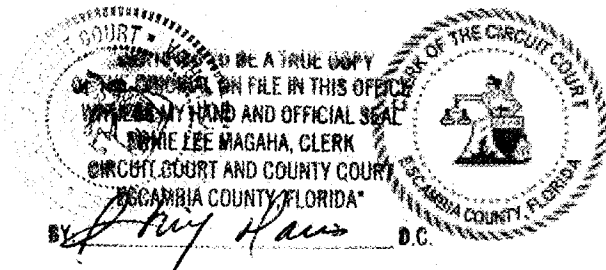 COURT
CERTIFIED TO BE A TRUE COPY
OF THE ORIGINAL ON FILE IN THIS OFFICE
WITNESS MY HAND AND OFFICIAL SEAL
ERNIE LEE MAGAHA, CLERK
CIRCUIT COURT AND COUNTY COURT
ESCAMBIA COUNTY, FLORIDA"
BY D.C.
CLERK OF THE CIRCUIT COURT
ESCAMBIA COUNTY, FLORIDA